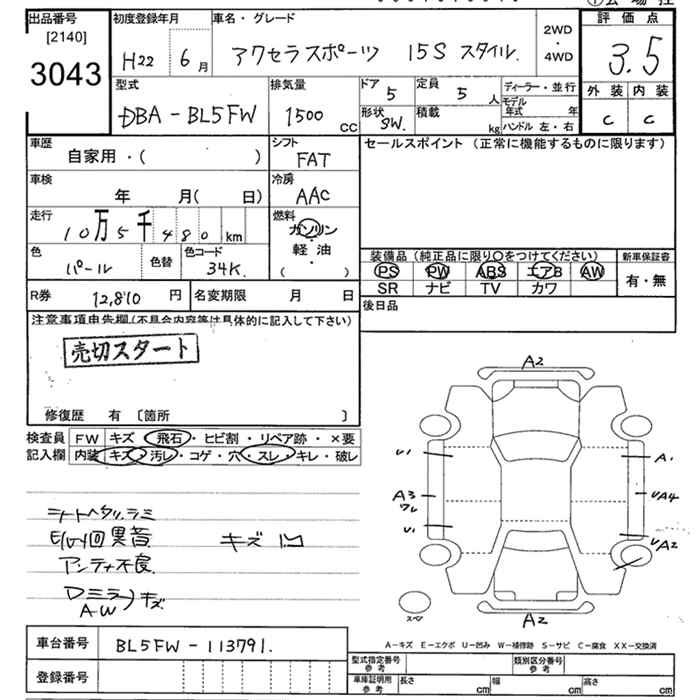 出品番号 初度登録年月 車名・グレード 評価点
[2140] 2WD
3043 H22 6月 アクセラスポーツ 15S スタイル. ・ 3.5
4WD
型式 排気量 ドア 5 定員 5 人 ディーラー・並行 外装 内装
DBA-BL5FW 1500 CC 形状 SW. 積載 kg モデル年式 年 C C
ハンドル 左・右
車歴 自家用・( ) シフト FAT セールスポイント (正常に機能するものに限ります)
車検 年 月( 日) 冷房 AAC
走行 10万5千480km 燃料 ガソリン
・
色 パール 色替 色コード 34K. 軽油
( )
装備品(純正品に限り○をつけてください) 新車保証書
PS PW ABS エアB AW 有・無
SR ナビ TV カワ
R券 12,810 円 名変期限 月 日 後日品
注意事項申告欄(不具合内容等は具体的に記入して下さい)
売切スタート
修復歴 有 〔箇所 〕
検査員 FW キズ・飛石・ヒビ割・リペア跡・×要
記入欄 内装 キズ・汚レ・コゲ・穴・スレ・キレ・破レ
A2
U1 A1
A3 UA4
ワレ
U1 UA2
A2
スペ
シートヘタリ.ラミ
異音 キズ 凹
アンテナ不良
Dミラーキズ
AW
A-キズ E-エクボ U-凹み W-補修跡 S-サビ C-腐食 XX-交換済
車台番号 BL5FW-113791.
登録番号
型式指定番号 参考 類別区分番号 参考
車庫証明用 参考 長さ cm 幅 cm 高さ cm